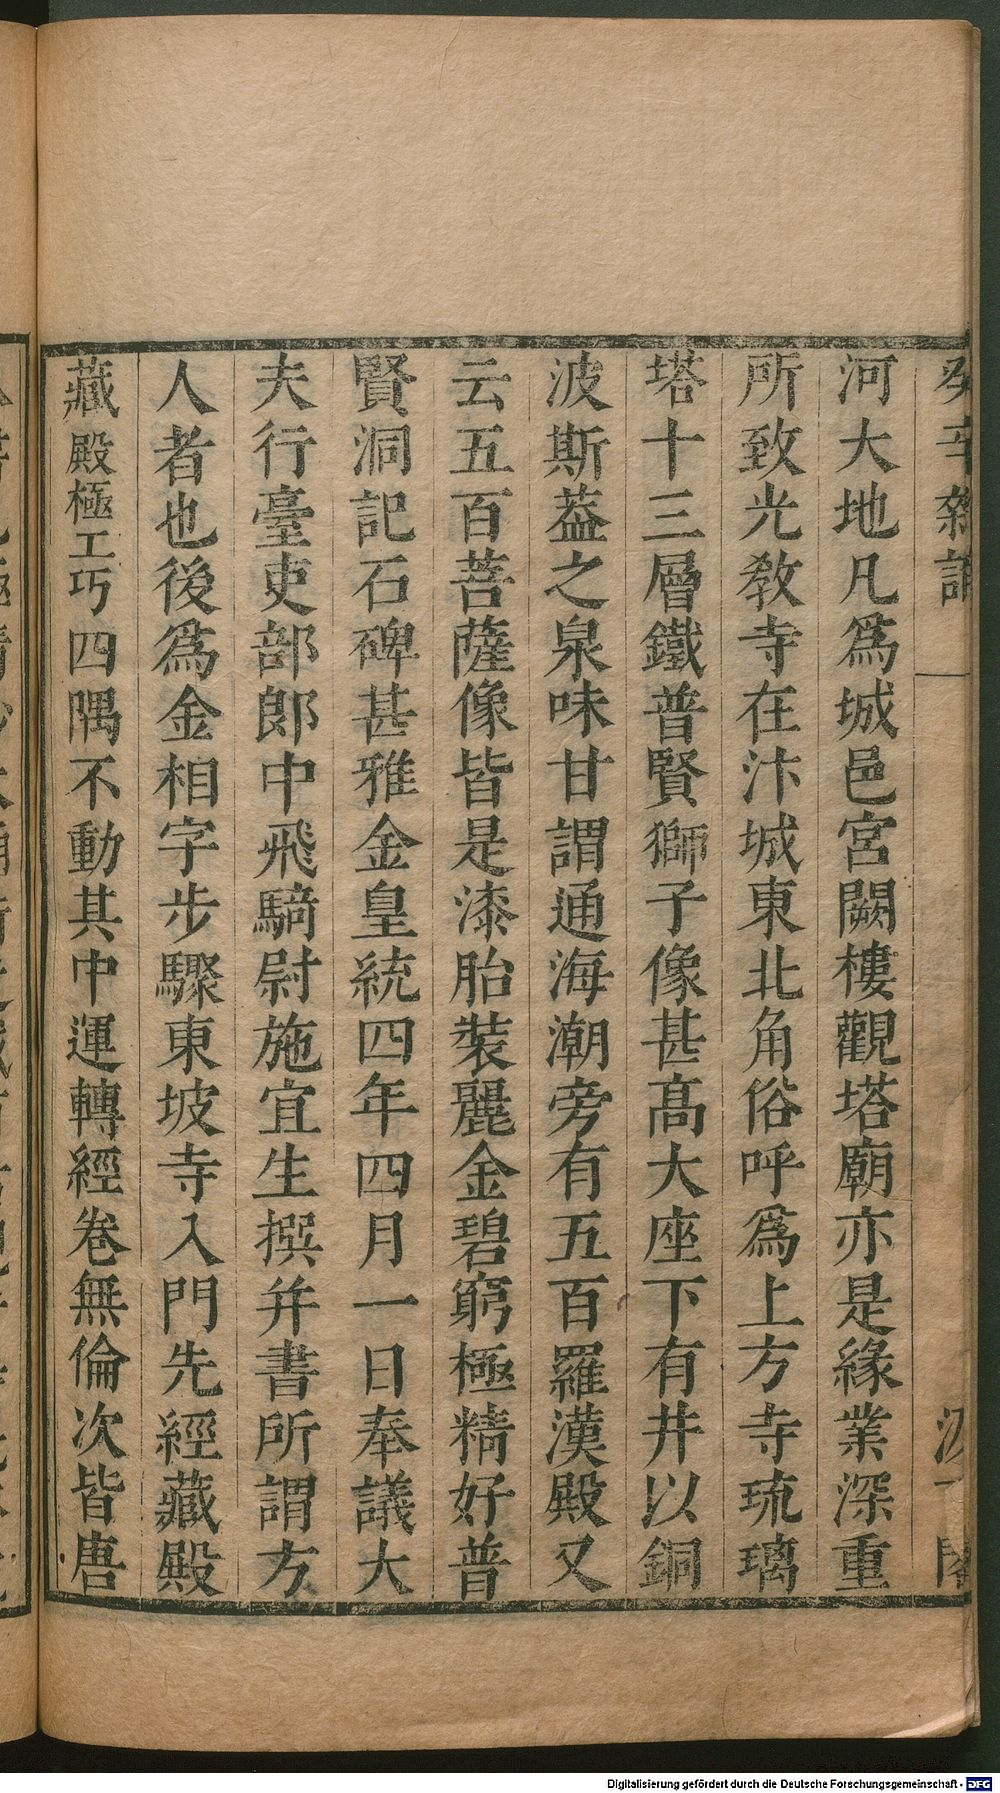 癸辛雜識
河大地凡爲城邑宮闕樓觀塔廟亦是緣業深重
所致光教寺在汴城東北角俗呼爲上方寺琉璃
塔十三層鐵普賢獅子像甚高大座下有井以銅
波斯葢之泉味甘謂通海潮旁有五百羅漢殿又
云五百菩薩像皆是漆胎裝麗金碧窮極精好普
賢洞記石碑甚雅金皇統四年四月一日奉議大
夫行臺吏部郎中飛騎尉施宜生撰并書所謂方
人者也後爲金相字步驟東坡寺入門先經藏殿
藏殿極工巧四隅不動其中運轉經卷無倫次皆唐
Digitalisierung gefördert durch die Deutsche Forschungsgemeinschaft - DFG